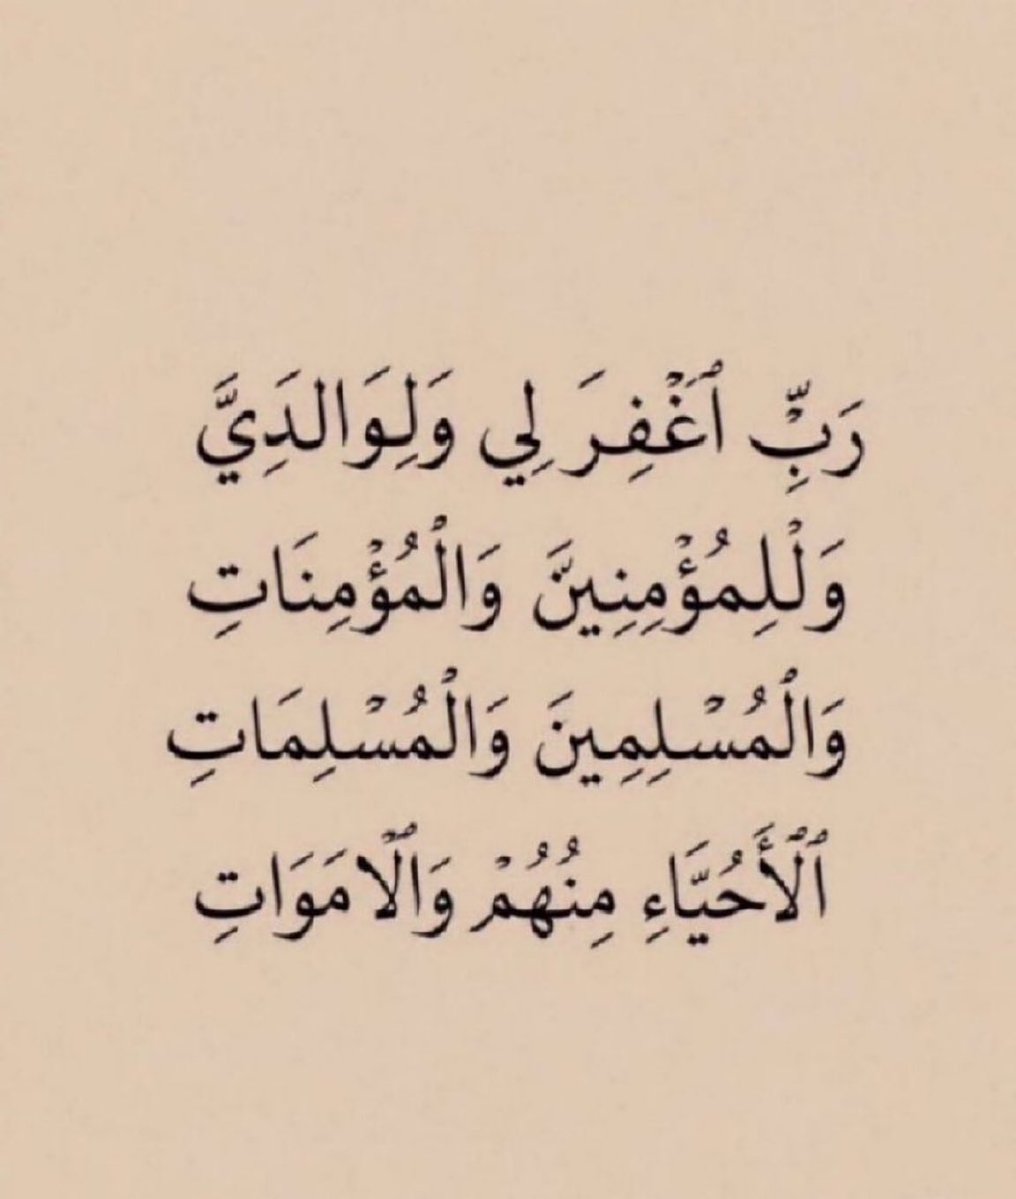 رَبِّ ٱغْفِرَ لِي وَلِوَالدَِيَّ
وَلْلِمُؤْمِنِينََّ وَالْمُؤْمِنَاتِ
وَالْمُسْلِمِينَ وَالْمُسْلِمَاتِ
ٱلْأَحُيَّاءِ مِنُهُمْ وَالْامَوَاتِ